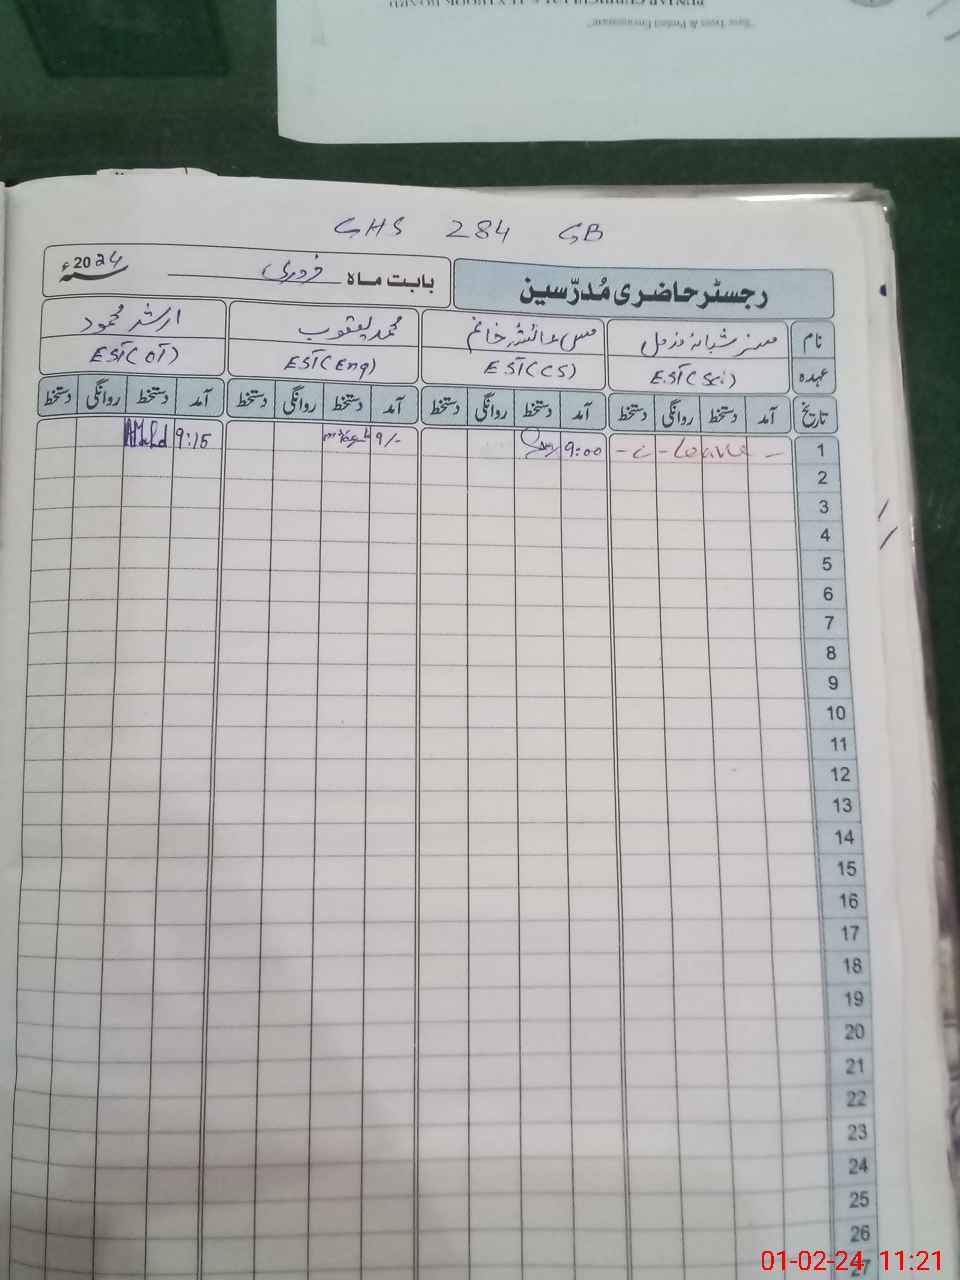 "Save Trees & Protect Environment"
GHS 284 GB
رجسٹر حاضری مُدرّسین
بابت ماہ فروری 2024ء
نام مسز شبانہ مزمل مس عائشہ خانم محمد یعقوب ارشد محمود
عہدہ EST(Sci) EST(CS) EST(Eng) EST(OT)
تاریخ آمد دستخط روانگی دستخط آمد دستخط روانگی دستخط آمد دستخط روانگی دستخط آمد دستخط روانگی دستخط
1 - C - Leave - 9:00 9/- 9:15
2
3
4
5
6
7
8
9
10
11
12
13
14
15
16
17
18
19
20
21
22
23
24
25
26
27
01-02-24 11:21